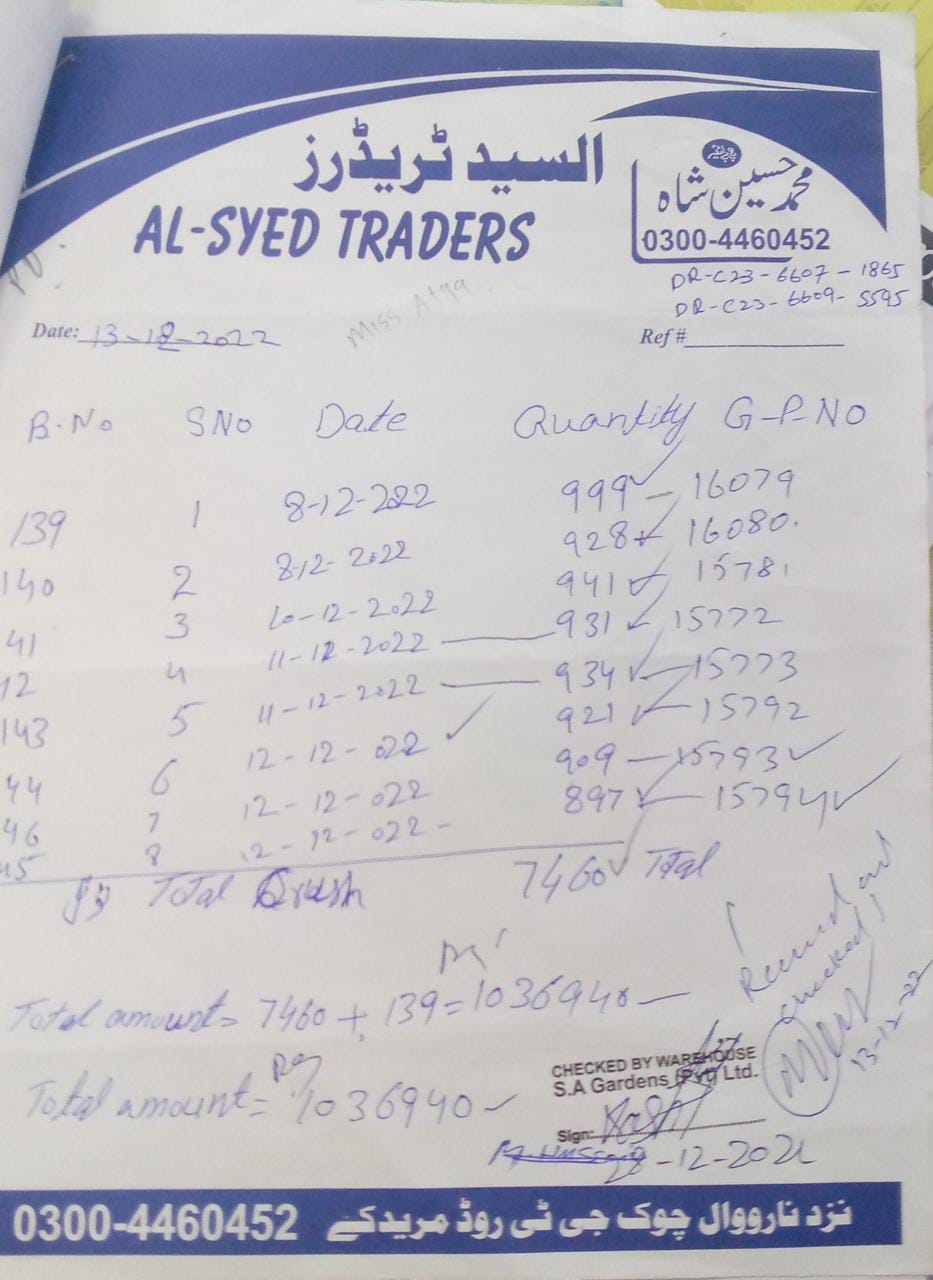 السید ٹریڈرز
پروپرائیٹر
محمد حسین شاہ
AL-SYED TRADERS
0300-4460452
DR-C23-6607-1865
DR-C23-6609-5595
Miss Atqa
Date: 13-12-2022 Ref #
B.No SNo Date Quantity G-P-NO
139 1 8-12-2022 999 - 16079
140 2 8-12-2022 928 16080.
41 3 10-12-2022 941 15781
12 4 11-12-2022 931 15772
143 5 11-12-2022 934 - 15773
44 6 12-12-022 921 - 15792
46 7 12-12-022 909 - 15793
45 8 12-12-022 - 897 - 15794
Total Crush 7460 Total
Total amount = 7460 + 139 = 1036940 -
Total amount = 1036940
checked
13-12-22
CHECKED BY WAREHOUSE
S.A Gardens (Pvt) Ltd.
Sign:
28-12-2022
0300-4460452 نزد نارووال چوک جی ٹی روڈ مریدکے